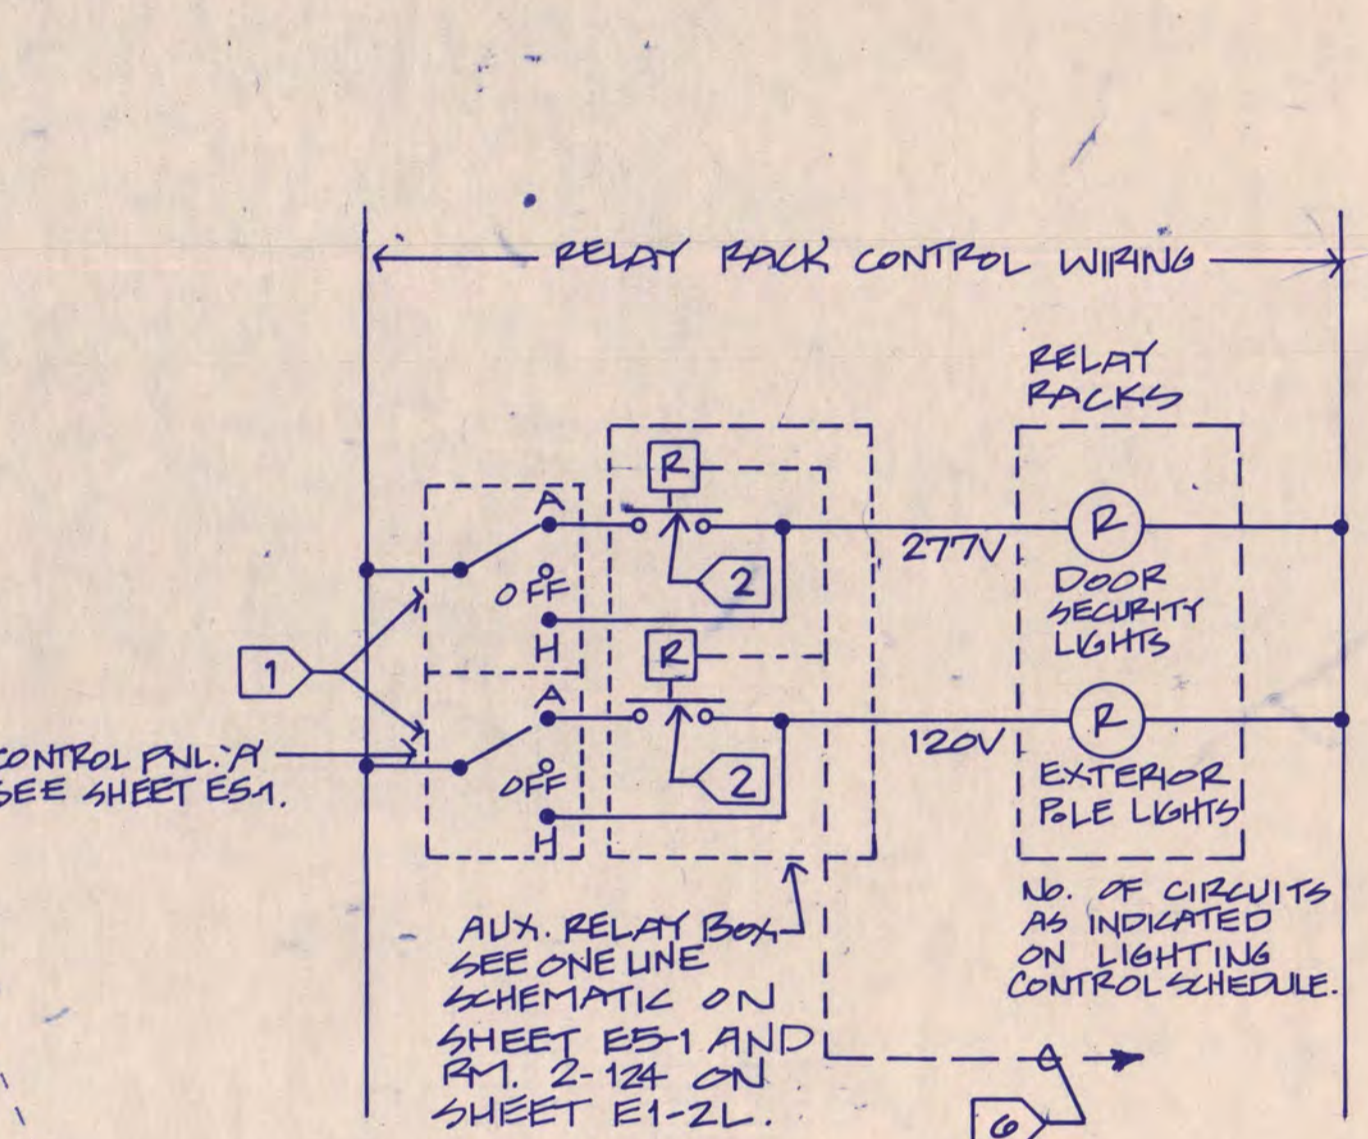 RELAY RACK CONTROL WIRING
RELAY
RACKS
R
A
OFF
H
2
277V
R
DOOR
SECURITY
LIGHTS
1
R
A
OFF
H
2
120V
R
EXTERIOR
POLE LIGHTS
CONTROL PNL. 'A'
SEE SHEET E5-1.
AUX. RELAY BOX
SEE ONE LINE
SCHEMATIC ON
SHEET E5-1 AND
RM. 2-124 ON
SHEET E1-2L.
NO. OF CIRCUITS
AS INDICATED
ON LIGHTING
CONTROL SCHEDULE.
6